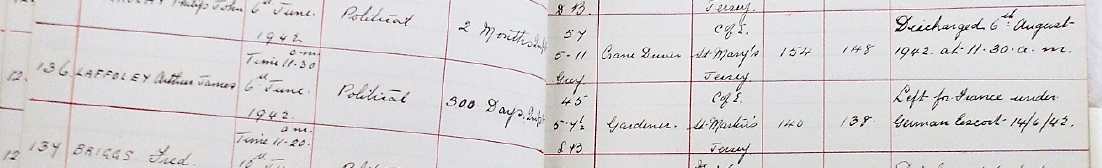 Philips John 6th June. Political 2 Months
1942.
a.m.
Time 11-30
12. 136 LAFFOLEY Arthur James 6th June. Political 300 Days.
1942.
a.m.
Time 11-20.
12 137 BRIGGS Fred.
& B. Jersey.
57 C of E. Discharged 6th August
5-11 Crane Driver St Mary's 154 148 1942. at 11.30. a.m.
Grey Jersey
45 C of E. Left for France under
5-7½ Gardener. St Martin's 140 138 German Escort - 14/6/42.
& B Jersey